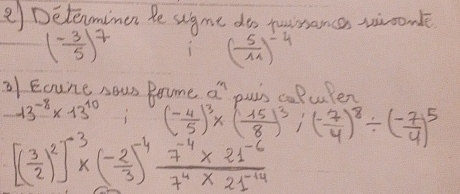 2) Déterminer le signe des puissances suivante
(-3/5)^7 ; (5/11)^-4
3) Ecrire sous forme a^n puis calculer
-13^-8 × 13^10 ; (-4/5)^3 × (15/8)^3 ; (-7/4)^8 ÷ (-7/4)^5
[(3/2)^2]^-3 × (-2/3)^-4 (7^-4 × 21^-6)/(7^4 × 21^-14)